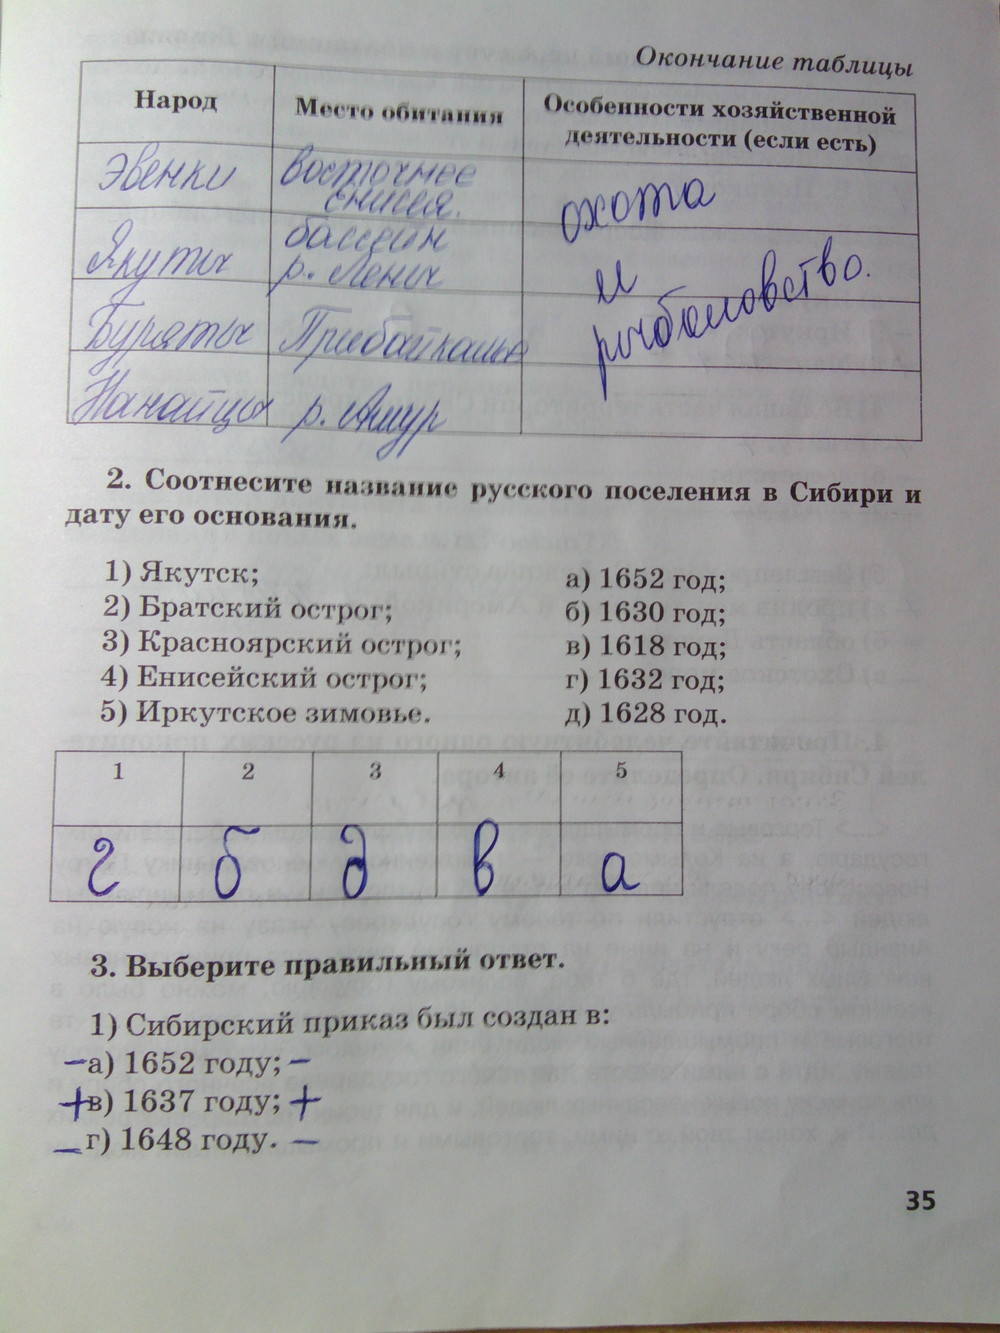 Окончание таблицы
Народ
Место обитания
Особенности хозяйственной
деятельности (если есть)
Эвенки
восточнее
енисея.
охота
Якуты
бассейн
р. Лены
и
Буряты
Прибайкалье
рыболовство.
Нанайцы
р. Амур
2. Соотнесите название русского поселения в Сибири и
дату его основания.
1) Якутск;
а) 1652 год;
2) Братский острог;
б) 1630 год;
3) Красноярский острог;
в) 1618 год;
4) Енисейский острог;
г) 1632 год;
5) Иркутское зимовье.
д) 1628 год.
1 2 3 4 5
г б д в а
3. Выберите правильный ответ.
1) Сибирский приказ был создан в:
– а) 1652 году; –
+ в) 1637 году; +
– г) 1648 году. –
35